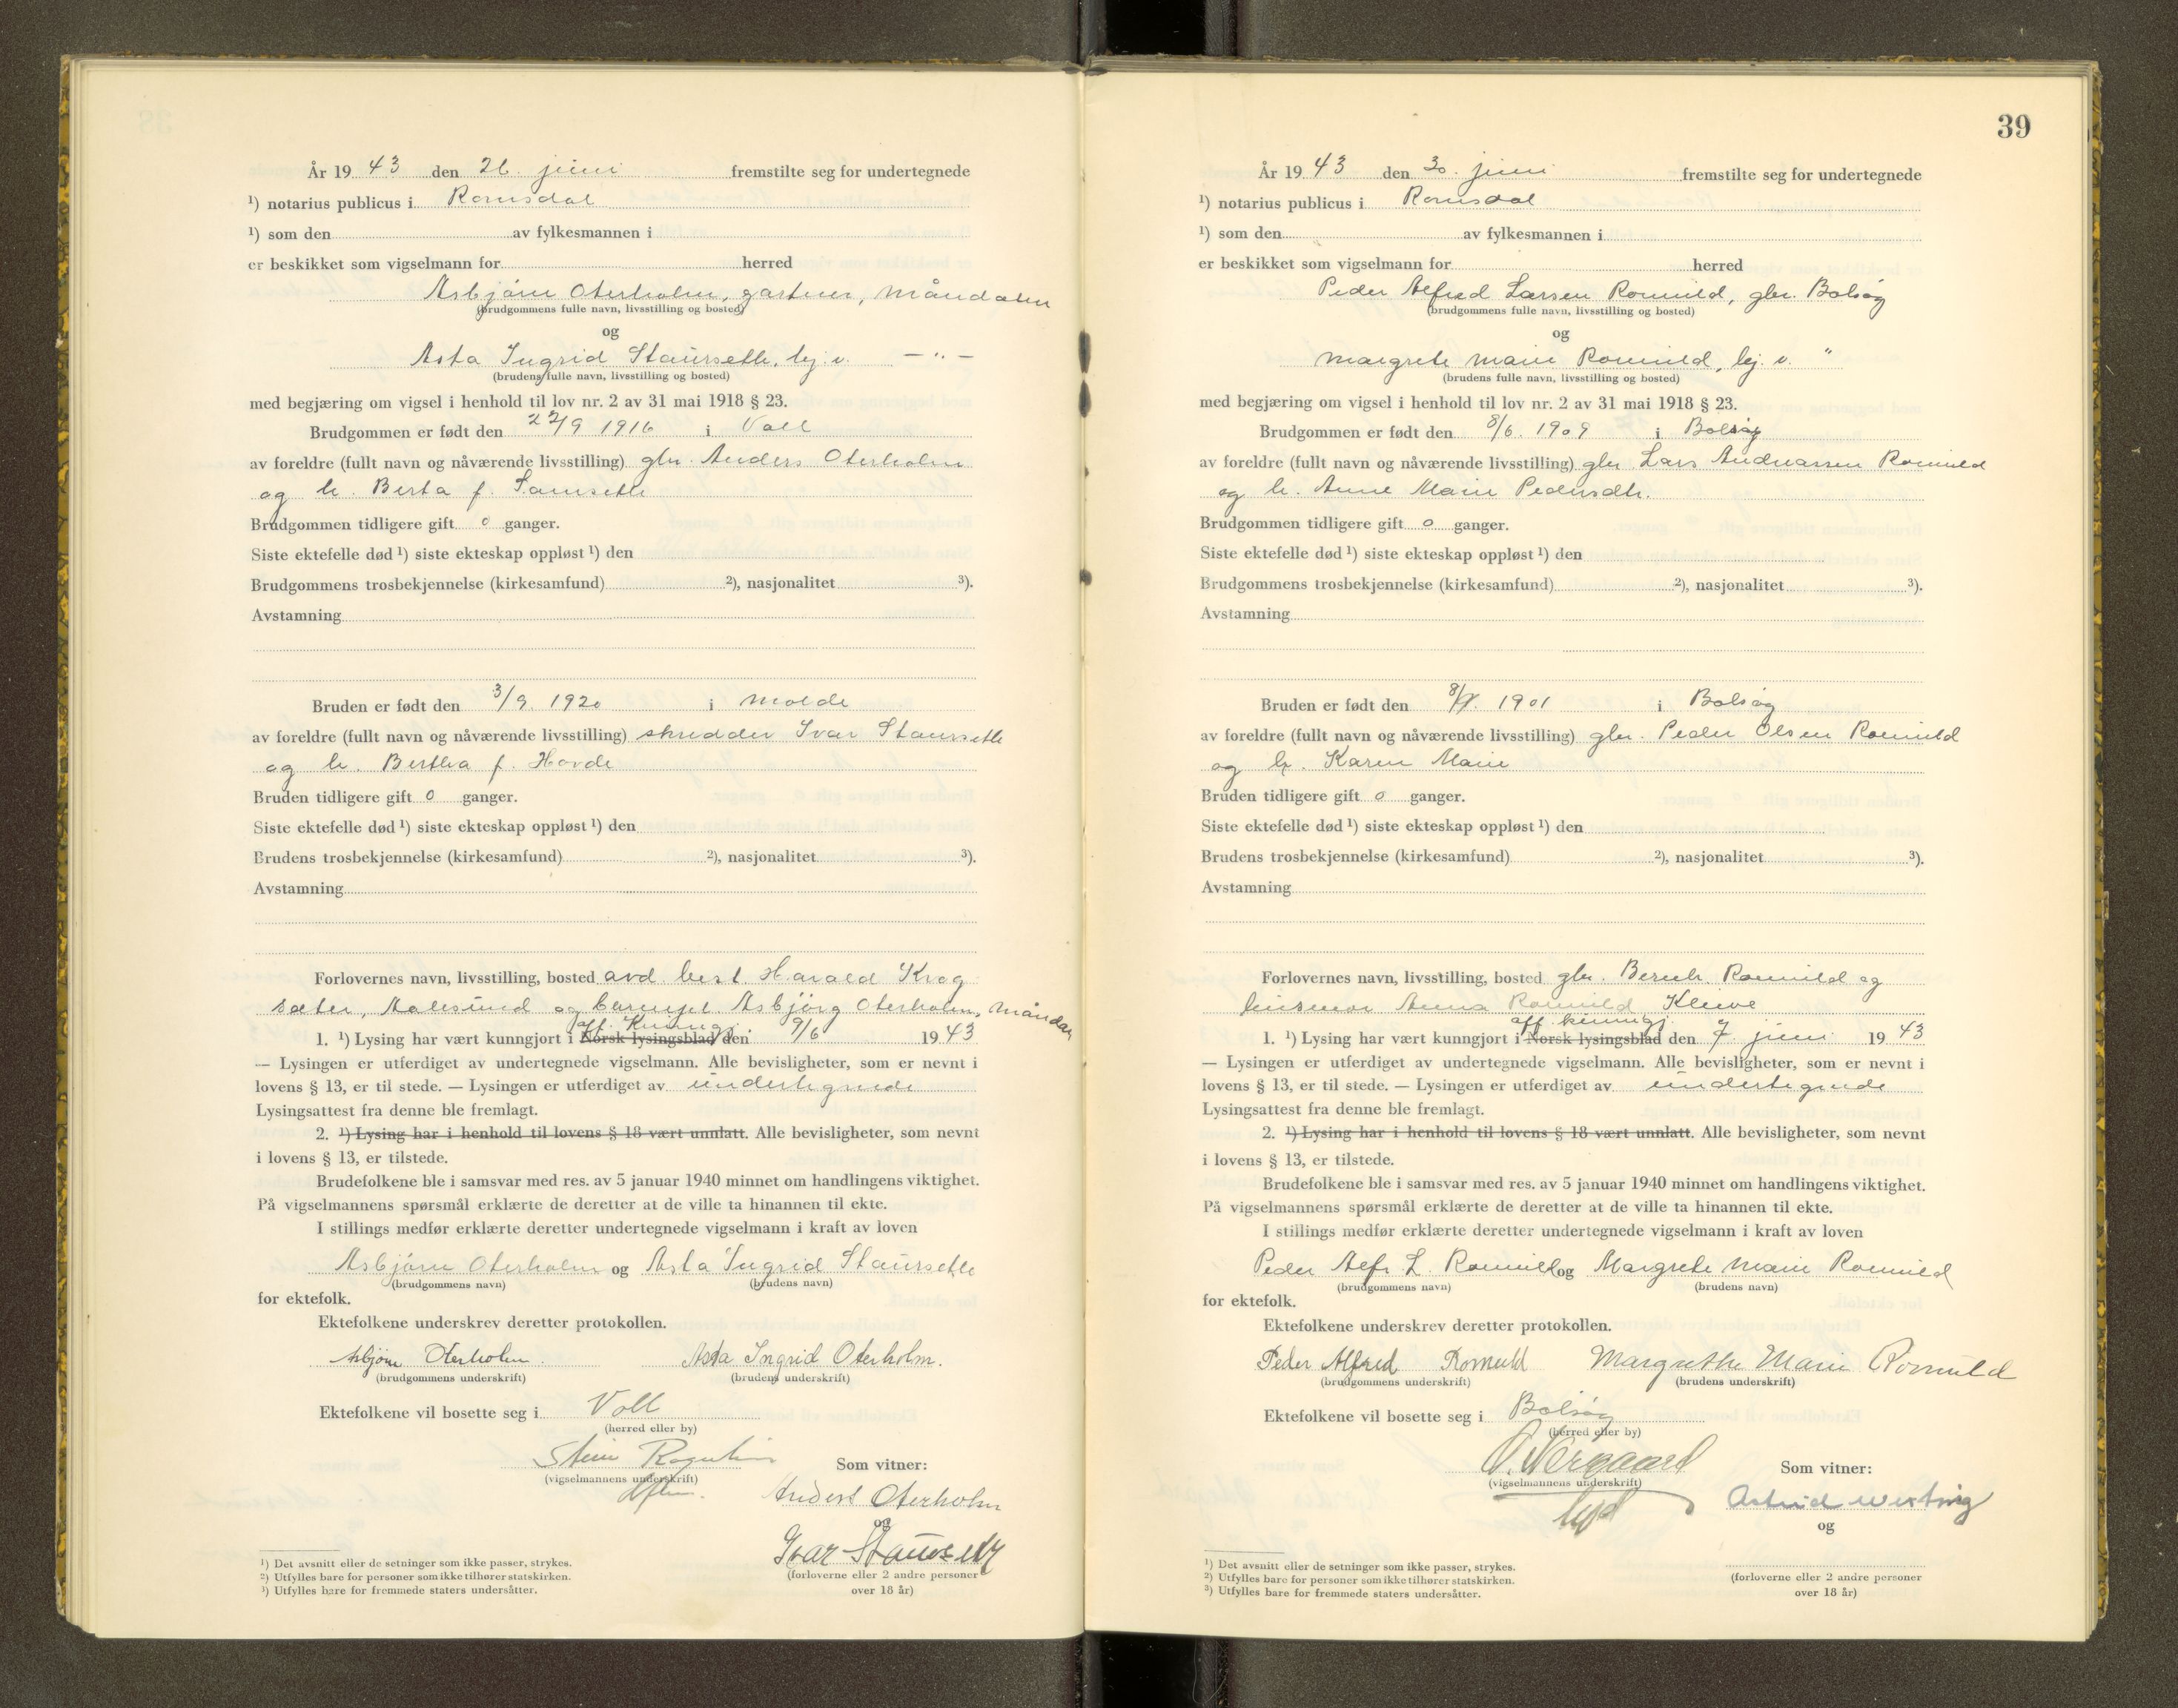 År 19 43 den 26. juni fremstilte seg for undertegnede
¹) notarius publicus i Romsdal
¹) som den av fylkesmannen i
er beskikket som vigselmann for herred
Asbjörn Oterholm, gartner, Måndalen
(brudgommens fulle navn, livsstilling og bosted)
og
Asta Ingrid Staurseth, hj.v. — " —
(brudens fulle navn, livsstilling og bosted)
med begjæring om vigsel i henhold til lov nr. 2 av 31 mai 1918 § 23.
Brudgommen er født den 22/9 1916 i Voll
av foreldre (fullt navn og nåværende livsstilling) gbr. Anders Oterholm
og h. Berta f.
Brudgommen tidligere gift 0 ganger.
Siste ektefelle død ¹) siste ekteskap oppløst ¹) den
Brudgommens trosbekjennelse (kirkesamfund) ²), nasjonalitet ³).
Avstamning
Bruden er født den 3/9. 1920 i Molde
av foreldre (fullt navn og nåværende livsstilling) skredder Ivar Staurseth
og h. Bertha f. Hovde
Bruden tidligere gift 0 ganger.
Siste ektefelle død ¹) siste ekteskap oppløst ¹) den
Brudens trosbekjennelse (kirkesamfund) ²), nasjonalitet ³).
Avstamning
Forlovernes navn, livsstilling, bosted avd. best. Harald Krog
sæter, Aalesund og Asbjörg Oterholm, Måndal
off. kunngj.
1. ¹) Lysing har vært kunngjort i Norsk lysingsblad den 9/6 19 43
— Lysingen er utferdiget av undertegnede vigselmann. Alle bevisligheter, som er nevnt i
lovens § 13, er til stede. — Lysingen er utferdiget av undertegnede
Lysingsattest fra denne ble fremlagt.
2. ¹) Lysing har i henhold til lovens § 18 vært unnlatt. Alle bevisligheter, som nevnt
i lovens § 13, er tilstede.
Brudefolkene ble i samsvar med res. av 5 januar 1940 minnet om handlingens viktighet.
På vigselmannens spørsmål erklærte de deretter at de ville ta hinannen til ekte.
I stillings medfør erklærte deretter undertegnede vigselmann i kraft av loven
Asbjörn Oterholm og Asta Ingrid Staurseth
(brudgommens navn) (brudens navn)
for ektefolk.
Ektefolkene underskrev deretter protokollen.
Asbjörn Oterholm. Asta Ingrid Oterholm.
(brudgommens underskrift) (brudens underskrift)
Ektefolkene vil bosette seg i Voll
(herred eller by)
Stein
(vigselmannens underskrift)
Som vitner:
Anders Oterholm
og
Ivar Staurseth
(forloverne eller 2 andre personer
over 18 år)
¹) Det avsnitt eller de setninger som ikke passer, strykes.
²) Utfylles bare for personer som ikke tilhører statskirken.
³) Utfylles bare for fremmede staters undersåtter.
39
År 19 43 den 30. juni fremstilte seg for undertegnede
¹) notarius publicus i Romsdal
¹) som den av fylkesmannen i
er beskikket som vigselmann for herred
Peder Alfred Larsen Romuld, gbr. Bolsöy
(brudgommens fulle navn, livsstilling og bosted)
og
Margrete Marie Romuld, hj.v. "
(brudens fulle navn, livsstilling og bosted)
med begjæring om vigsel i henhold til lov nr. 2 av 31 mai 1918 § 23.
Brudgommen er født den 8/6. 1909 i Bolsöy
av foreldre (fullt navn og nåværende livsstilling) gbr. Lars Andreassen Romuld
og h. Anne Marie Pedersdtr.
Brudgommen tidligere gift 0 ganger.
Siste ektefelle død ¹) siste ekteskap oppløst ¹) den
Brudgommens trosbekjennelse (kirkesamfund) ²), nasjonalitet ³).
Avstamning
Bruden er født den 1901 i Bolsöy
av foreldre (fullt navn og nåværende livsstilling) gbr. Peder Olsen Romuld
og h. Karen Marie
Bruden tidligere gift 0 ganger.
Siste ektefelle død ¹) siste ekteskap oppløst ¹) den
Brudens trosbekjennelse (kirkesamfund) ²), nasjonalitet ³).
Avstamning
Forlovernes navn, livsstilling, bosted gbr. Romuld og
husmor Anna Romuld Kleive
off. kunngj.
1. ¹) Lysing har vært kunngjort i Norsk lysingsblad den 7. juni 19 43
— Lysingen er utferdiget av undertegnede vigselmann. Alle bevisligheter, som er nevnt i
lovens § 13, er til stede. — Lysingen er utferdiget av undertegnede
Lysingsattest fra denne ble fremlagt.
2. ¹) Lysing har i henhold til lovens § 18 vært unnlatt. Alle bevisligheter, som nevnt
i lovens § 13, er tilstede.
Brudefolkene ble i samsvar med res. av 5 januar 1940 minnet om handlingens viktighet.
På vigselmannens spørsmål erklærte de deretter at de ville ta hinannen til ekte.
I stillings medfør erklærte deretter undertegnede vigselmann i kraft av loven
Peder Alfr. L. Romuld og Margrete Marie Romuld
(brudgommens navn) (brudens navn)
for ektefolk.
Ektefolkene underskrev deretter protokollen.
Peder Alfred Romuld Margrethe Marie Romuld
(brudgommens underskrift) (brudens underskrift)
Ektefolkene vil bosette seg i Bolsöy
(herred eller by)
(vigselmannens underskrift)
Som vitner:
Astrid
og
(forloverne eller 2 andre personer
over 18 år)
¹) Det avsnitt eller de setninger som ikke passer, strykes.
²) Utfylles bare for personer som ikke tilhører statskirken.
³) Utfylles bare for fremmede staters undersåtter.